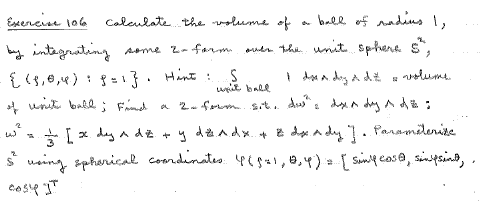 Exercise 106 Calculate the volume of a ball of radius 1,
by integrating some 2-form over the unit sphere S²,
{(ρ,θ,φ) : ρ=1}. Hint : ∫unit ball 1 dx∧dy∧dz = volume
of unit ball; Find a 2-form s.t. dω² = dx∧dy∧dz :
ω² = 1/3 [x dy∧dz + y dz∧dx + z dx∧dy]. Parameterize
S² using spherical coordinates φ(ρ=1,θ,φ) = [sinφcosθ, sinφsinθ,
cosφ]ᵀ